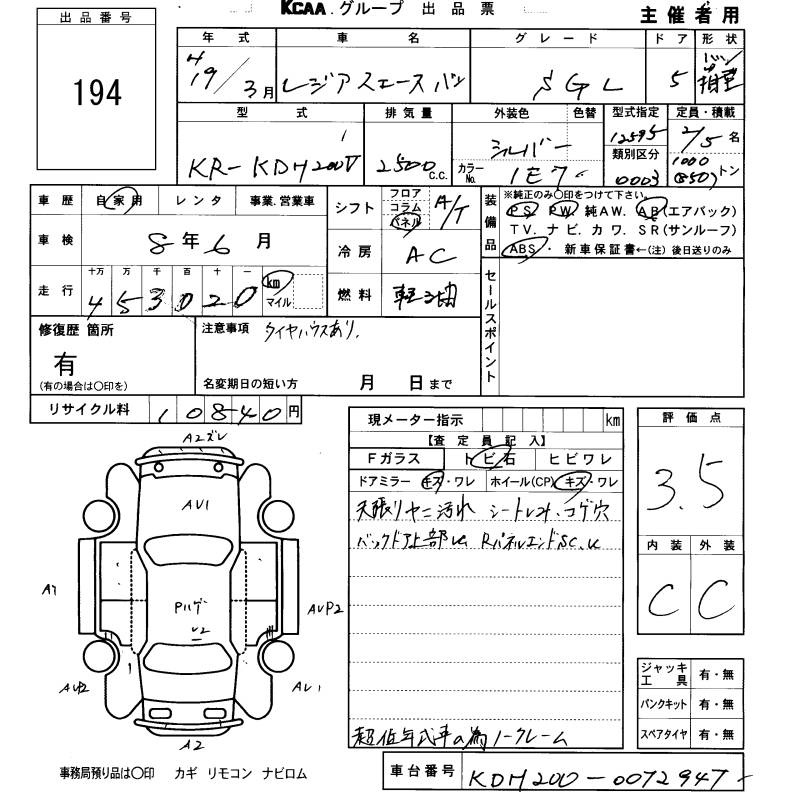 出品番号
194
KCAA.グループ 出品票
主催者用
年式 車名 グレード ドア 形状
H19/3月 レジアスエースバン SGL 5 バン 箱型
型式 排気量 外装色 色替 型式指定 定員・積載
KR-KDH200V 2500 C.C. シルバー 12595 2/5名
カラーNo. 1E7 類別区分 0003 1000 (850)トン
車歴 自家用 レンタ 事業.営業車
車検 8年6月
走行 十万 万 千 百 十 一
453020 km マイル
シフト フロア コラム パネル A/T
冷房 AC
燃料 軽油
装備品 ※純正のみ〇印をつけて下さい。
PS PW 純AW. AB(エアバック)
TV. ナビ. カワ. SR(サンルーフ)
ABS・新車保証書←(注) 後日送りのみ
セールスポイント
修復歴 箇所
有
(有の場合は〇印を)
注意事項 タイヤハウスあり.
名変期日の短い方 月 日まで
リサイクル料 10840円
現メーター指示 km
【査定員記入】
Fガラス トビ石 ヒビワレ
ドアミラー キズ・ワレ ホイール(CP) キズ・ワレ
天張リヤニ汚れ シートレオ.コゲ穴
バックドア上部U Rパネルエンド SC.U
超低年式車の為ノークレーム
評価点
3.5
内装 外装
C C
ジャッキ工具 有・無
パンクキット 有・無
スペアタイヤ 有・無
A2ズレ
AU1
A1
Pハゲ
U2
AUP2
AUP2
AU1
A2
事務局預り品は〇印 カギ リモコン ナビロム
車台番号 KDH200-0072947-